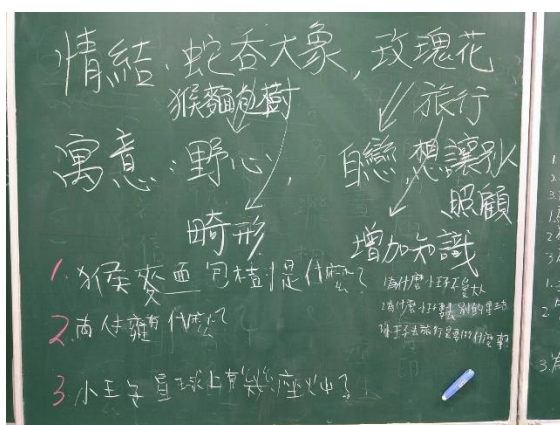 情結:蛇吞大象,玫瑰花
猴麵包樹
旅行
寓意:野心,
自戀,想讓別人
照顧
畸形
增加知識
1.猴麥面包樹是什麼?
2.商人擁有什麼?
3.小王子星球上有幾座火山?
1.為什麼小王子不愛大人
2.為什麼小王子 別的星球
3.小王子去旅行是要做什麼事?